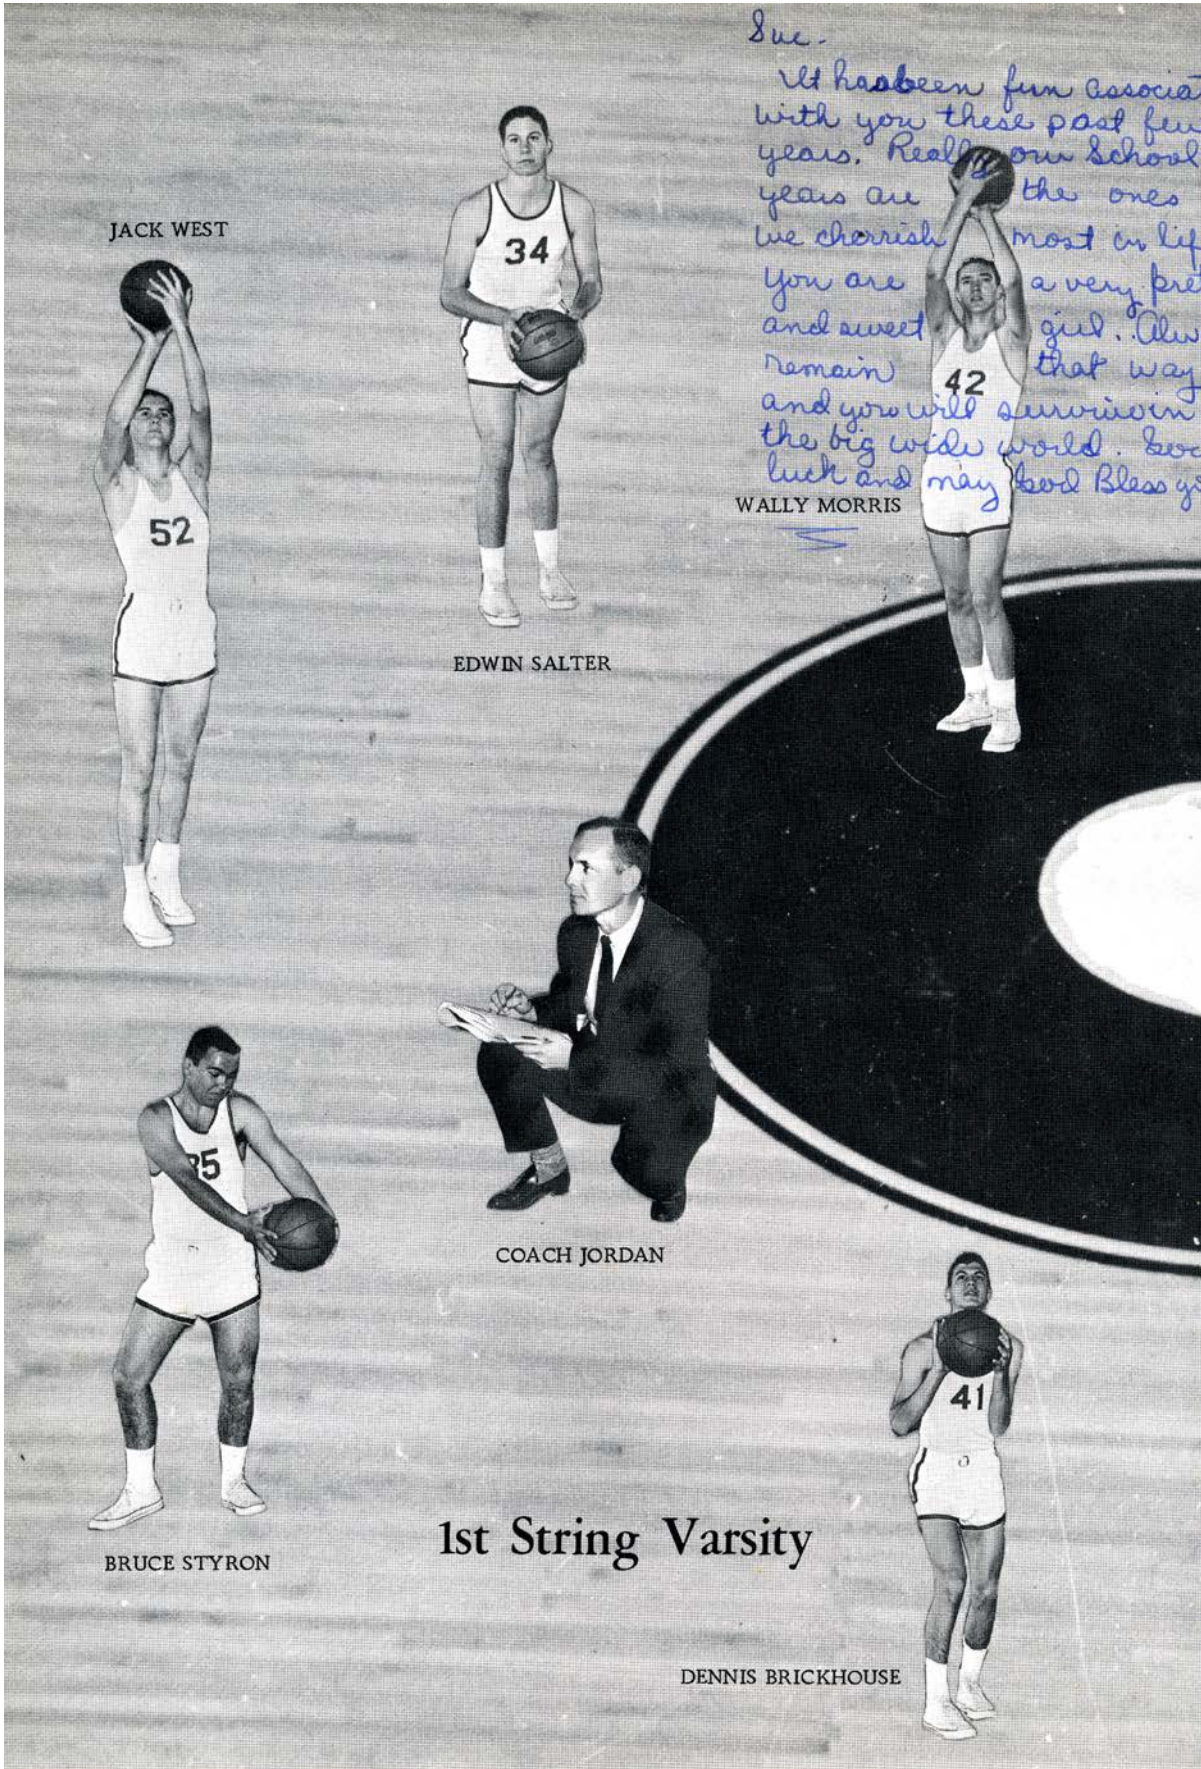 Sue.
It has been fun associat
with you these past few
years. Really our School
years are the ones
we cherrish most in lif
You are a very pre
and sweet girl. Alw
remain that way
and you will survive in
the big wide world. Goo
luck and may God Bless yo
JACK WEST
34
42
52
WALLY MORRIS
EDWIN SALTER
35
COACH JORDAN
41
1st String Varsity
BRUCE STYRON
DENNIS BRICKHOUSE